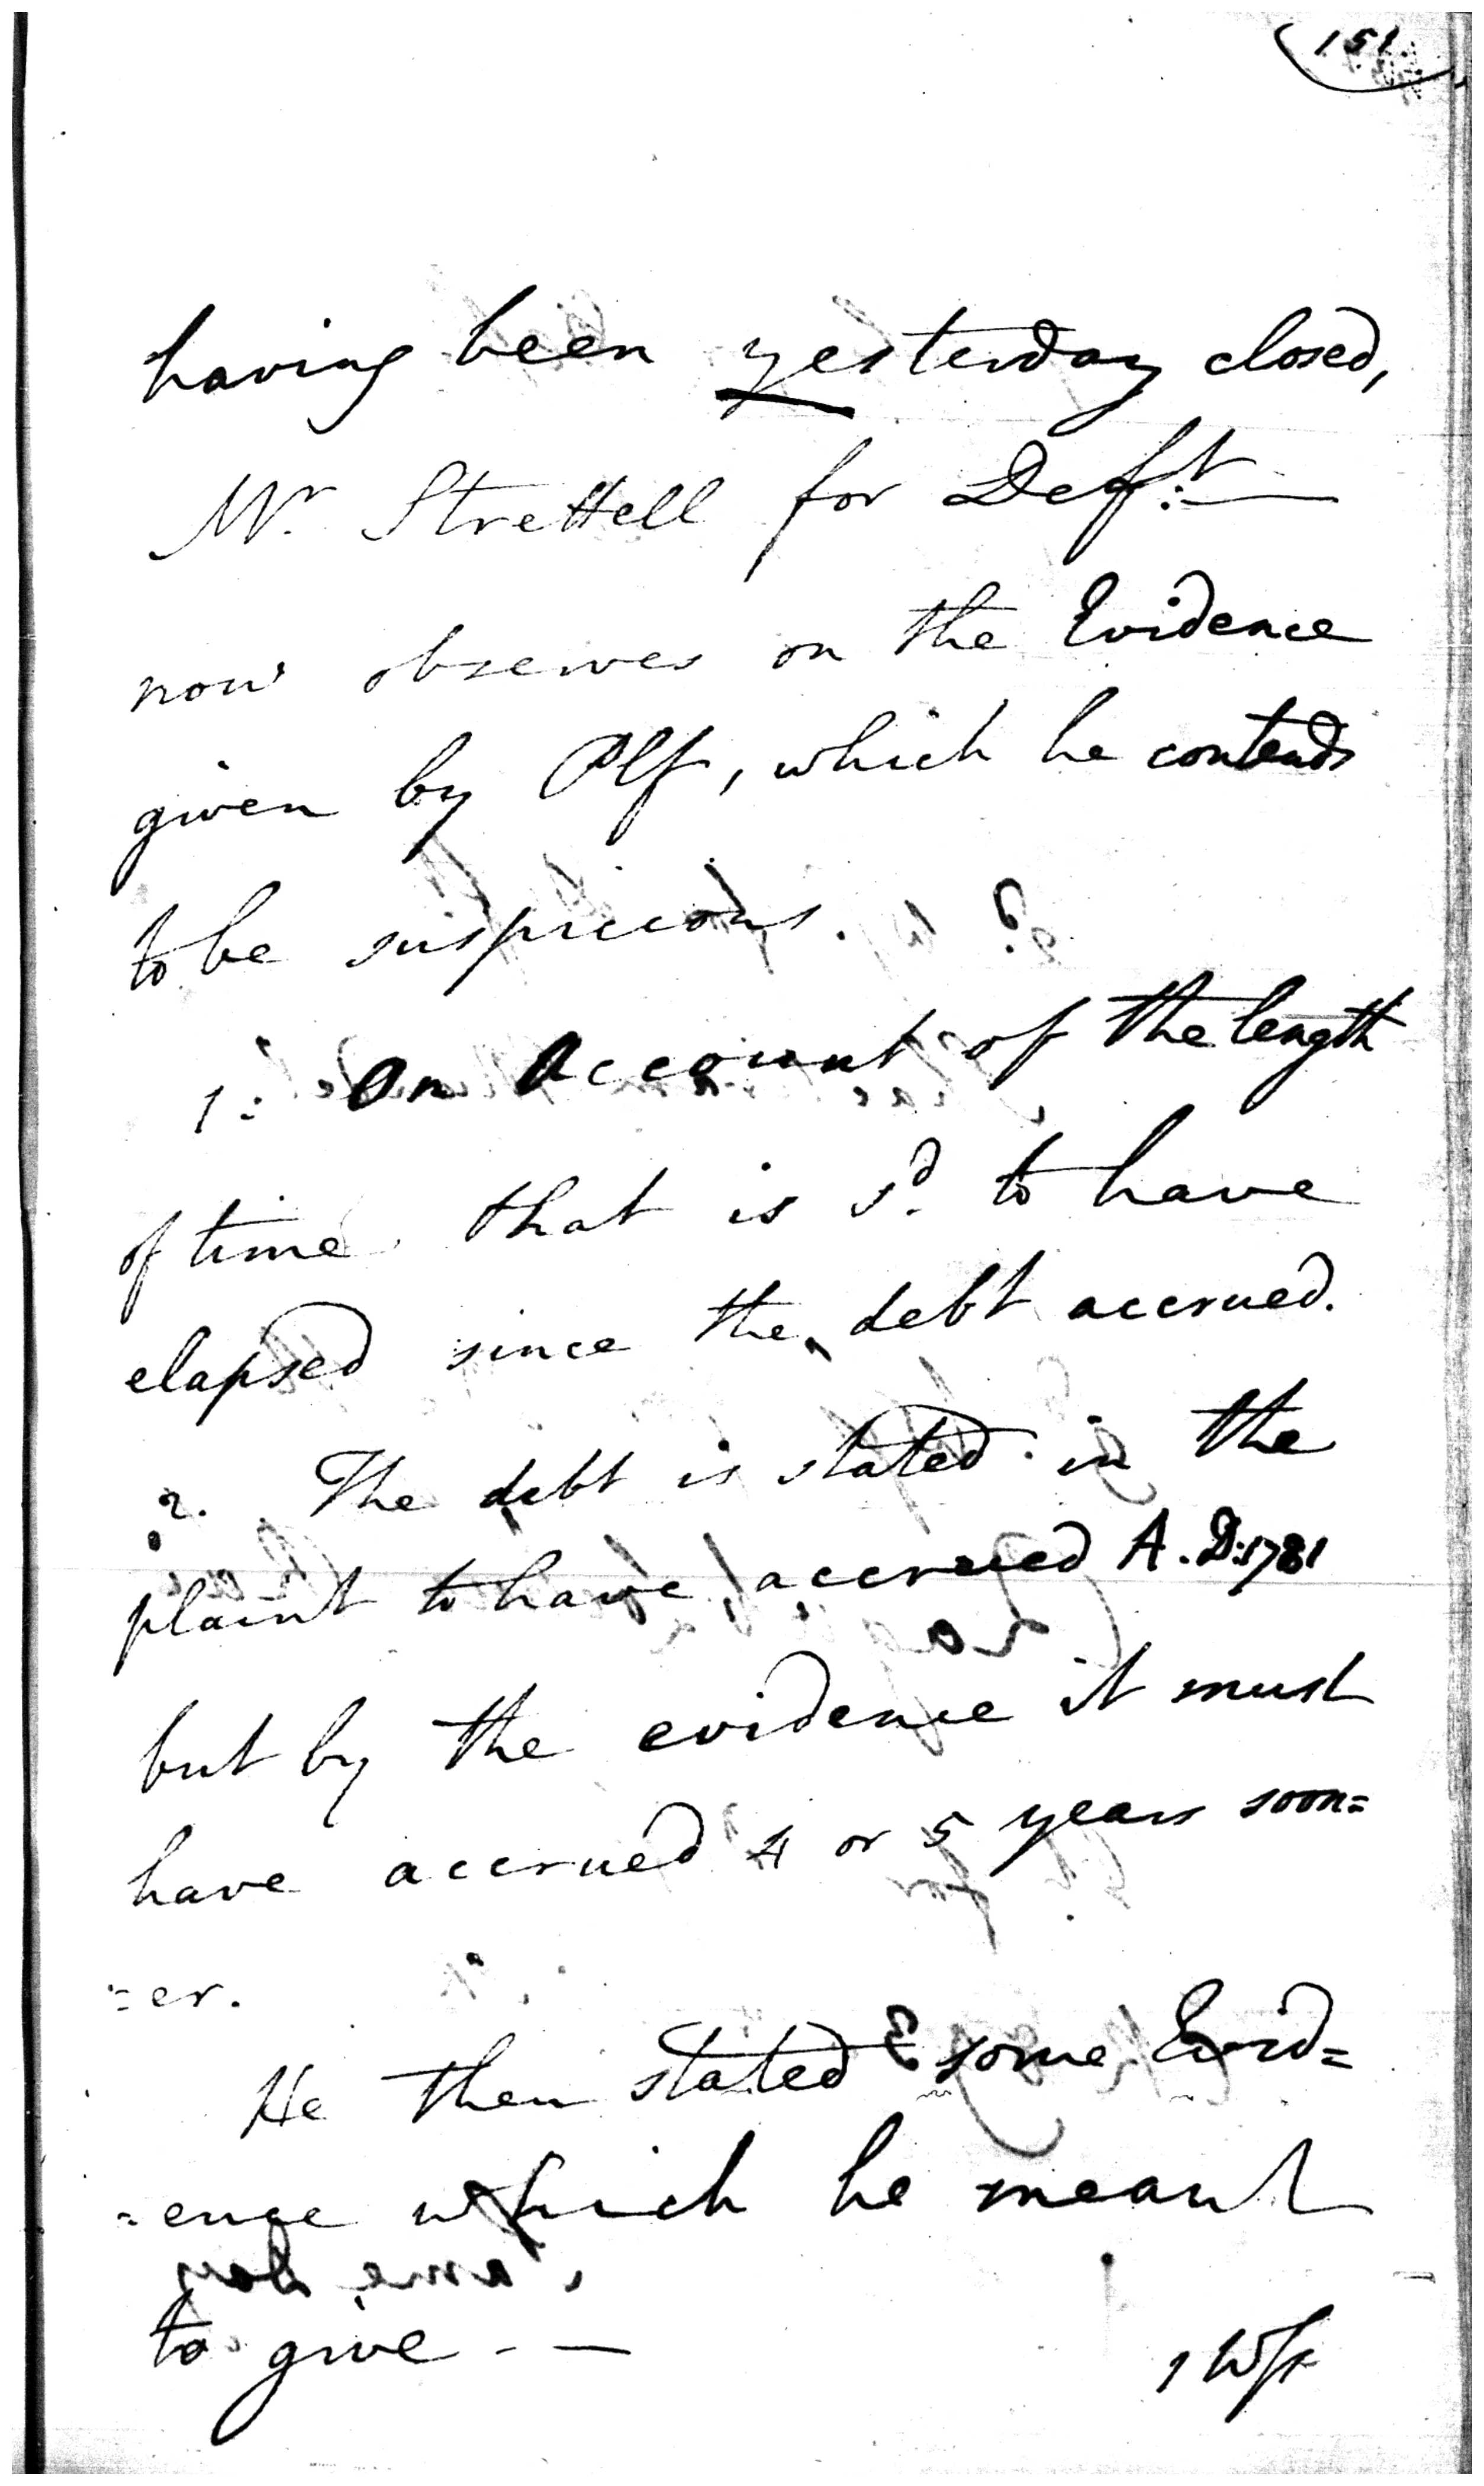 151.
having been yesterday closed,
Mr. Strettell for Deft:
now observes on the Evidence
given by Plf, which he contends
to be suspicious.
1: On Account of the length
of time that is sd. to have
elapsed since the debt accrued.
2. The debt is stated in the
plaint to have accrued A.D:1781
but by the evidence it must
have accrued 4 or 5 years soon=
=er.
He then stated some Evid=
=ence which he meant
to give - —
1 Wss